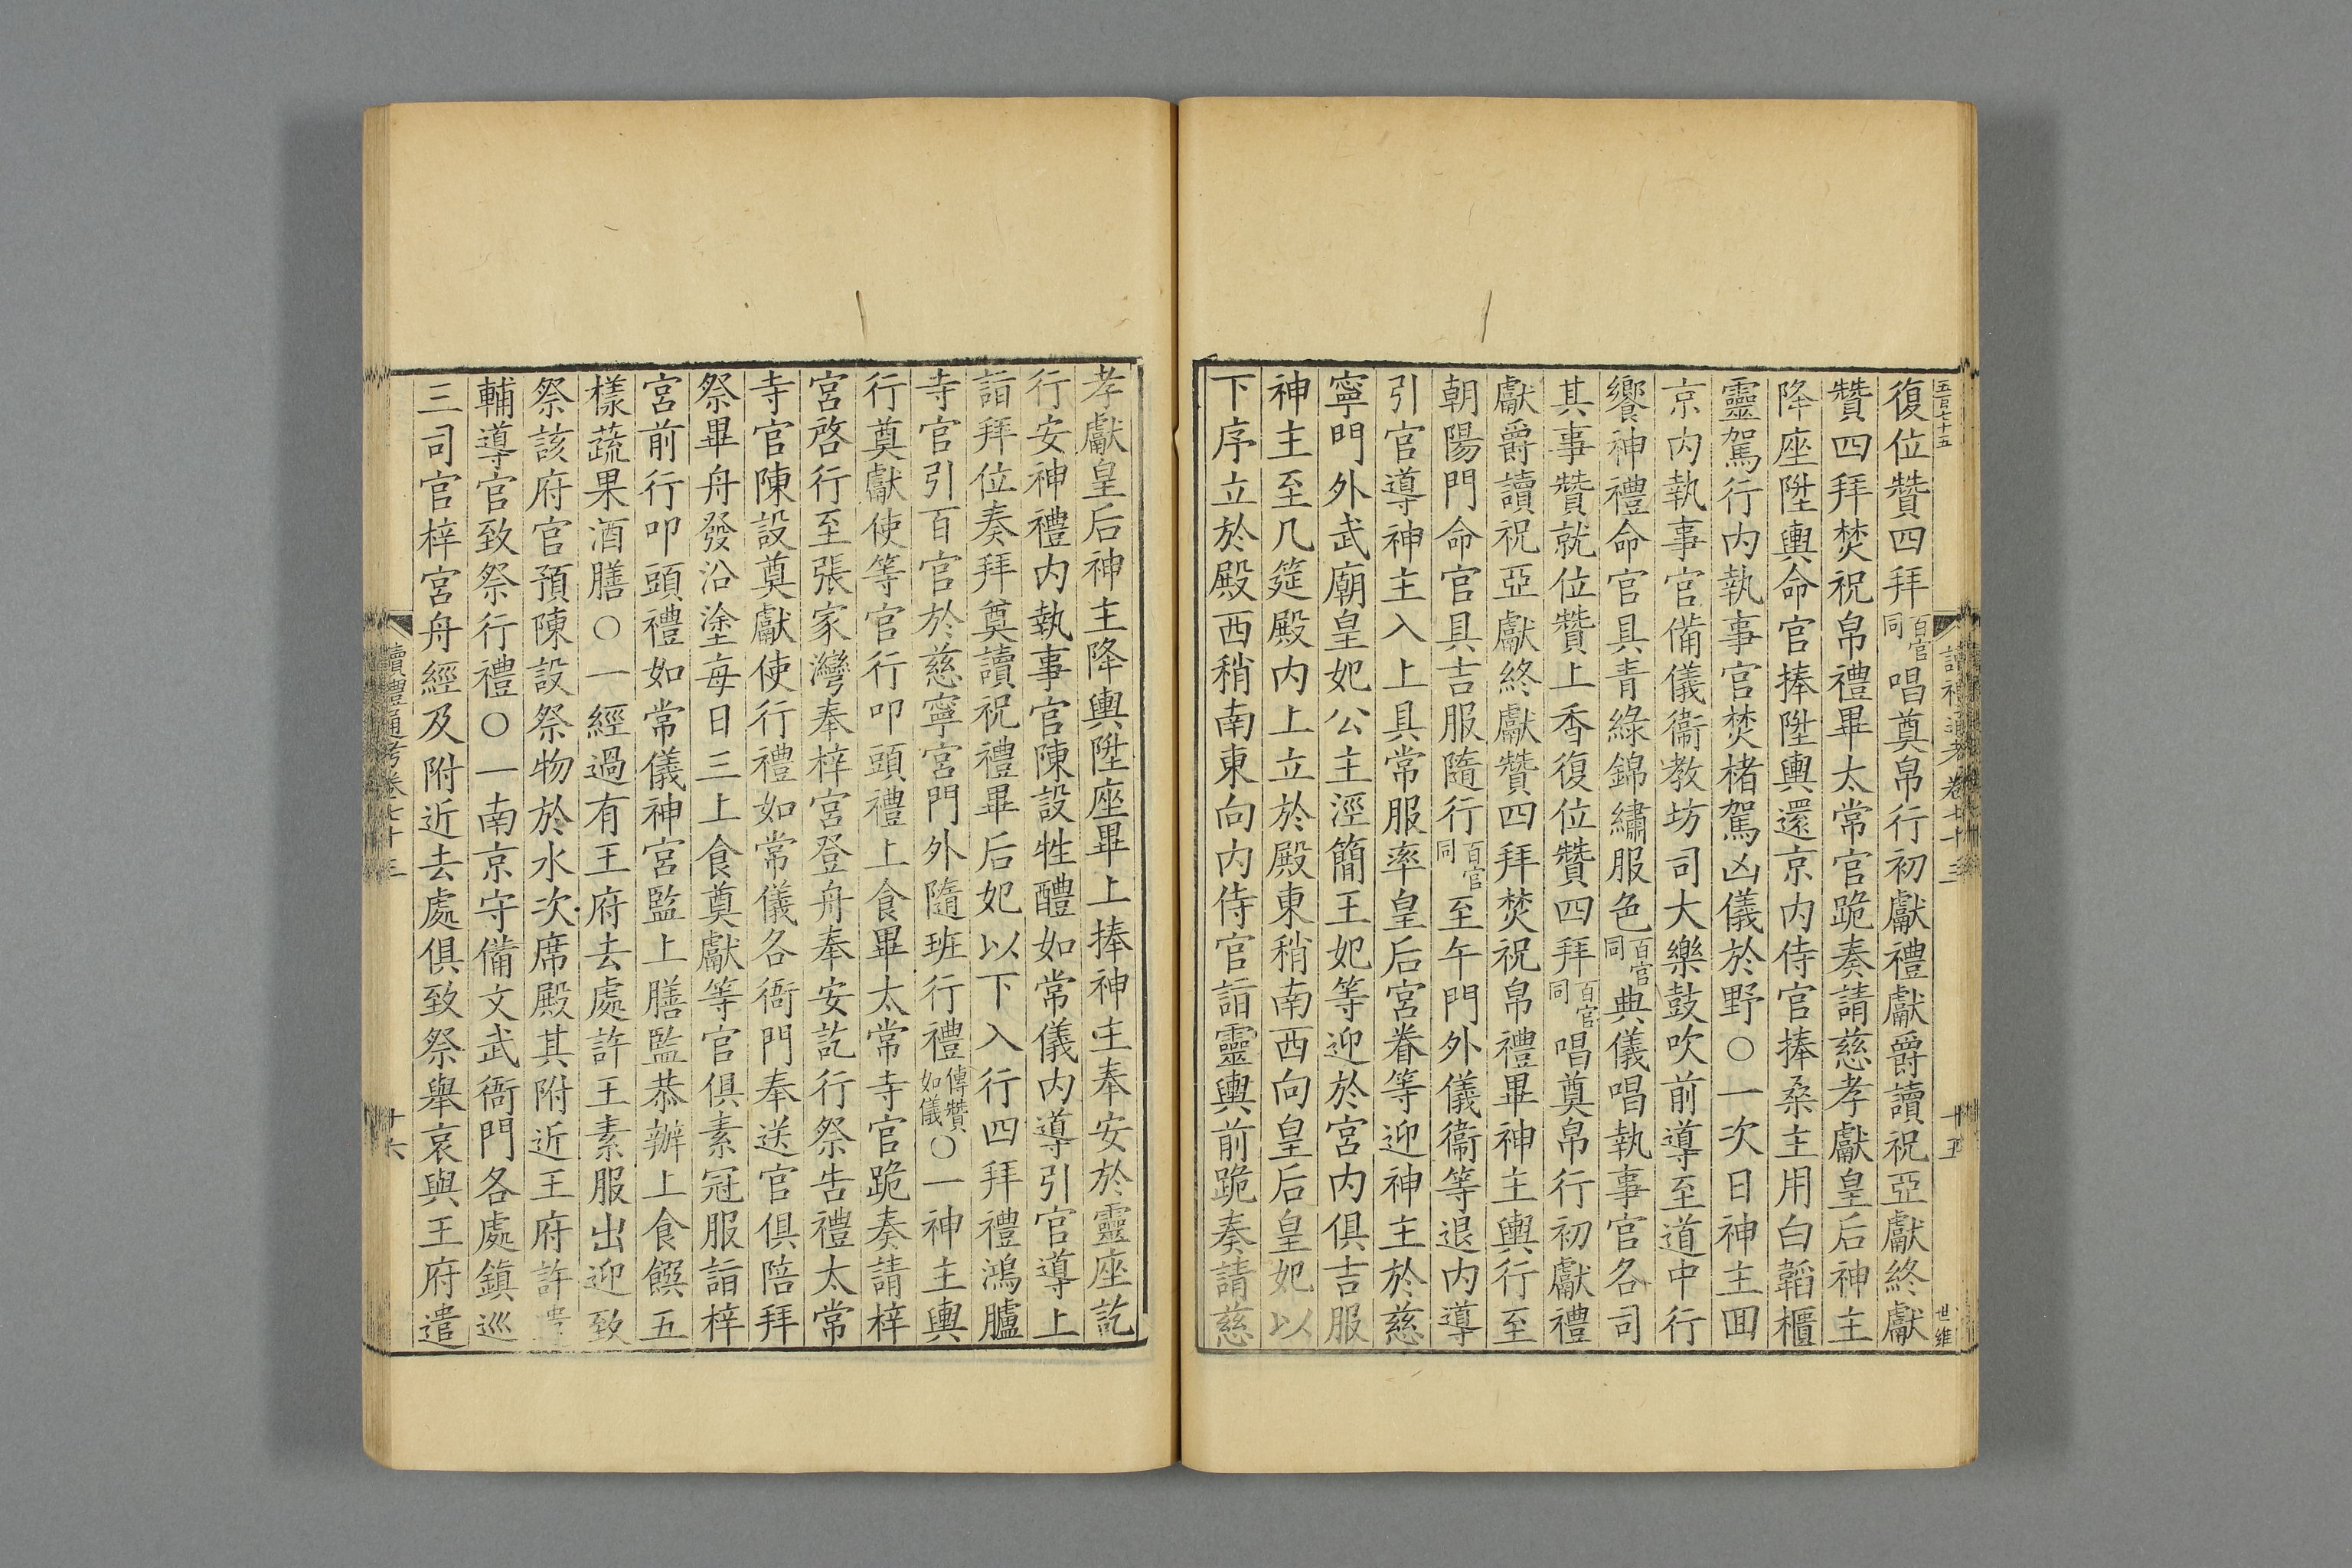 五百七十五
復位贊四拜百官同唱奠帛行初獻禮獻爵讀祝亞獻終獻
贊四拜焚祝帛禮畢太常官跪奏請慈孝獻皇后神主
降座陞輿命官捧陞輿還京內侍官捧桑主用白韜櫃
靈駕行內執事官焚楮駕凶儀於野○一次日神主回
京內執事官備儀衞教坊司大樂鼓吹前導至道中行
饗神禮命官具青綠錦繡服色百官同典儀唱執事官各司
其事贊就位贊上香復位贊四拜百官同唱奠帛行初獻禮
獻爵讀祝亞獻終獻贊四拜焚祝帛禮畢神主輿行至
朝陽門命官具吉服隨行百官同至午門外儀衞等退內導
引官導神主入上具常服率皇后宮眷等迎神主於慈
寧門外武廟皇妃公主涇簡王妃等迎於宮內俱吉服
神主至几筵殿內上立於殿東稍南西向皇后皇妃以
下序立於殿西稍南東向內侍官詣靈輿前跪奏請慈
讀禮通考卷七十三
十五
世維
孝獻皇后神主降輿陞座畢上捧神主奉安於靈座訖
行安神禮內執事官陳設牲醴如常儀內導引官導上
詣拜位奏拜奠讀祝禮畢后妃以下入行四拜禮鴻臚
寺官引百官於慈寧宮門外隨班行禮傳贊如儀○一神主輿
行奠獻使等官行叩頭禮上食畢太常寺官跪奏請梓
宮啓行至張家灣奉梓宮登舟奉安訖行祭告禮太常
寺官陳設奠獻使行禮如常儀各衙門奉送官俱陪拜
祭畢舟發沿塗每日三上食奠獻等官俱素冠服詣梓
宮前行叩頭禮如常儀神宮監上膳監恭辦上食饌五
樣蔬果酒膳○一經過有王府去處許王素服出迎致
祭該府官預陳設祭物於水次席殿其附近王府許遣
輔導官致祭行禮○一南京守備文武衙門各處鎮巡
三司官梓宮舟經及附近去處俱致祭舉哀與王府遣
讀禮通考卷七十三
十六